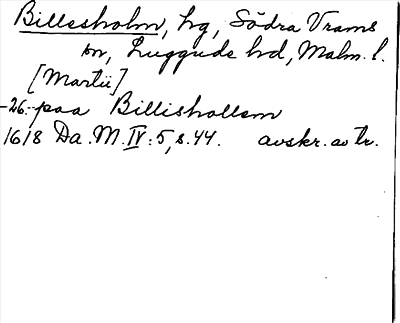 Billesholm, hg, Södra Vrams
sn, Luggude hd, Malm. l.
[Martii]
-26.- paa Billishollem
1618 Da. M. IV:5, s. 44. avskr. av tr.